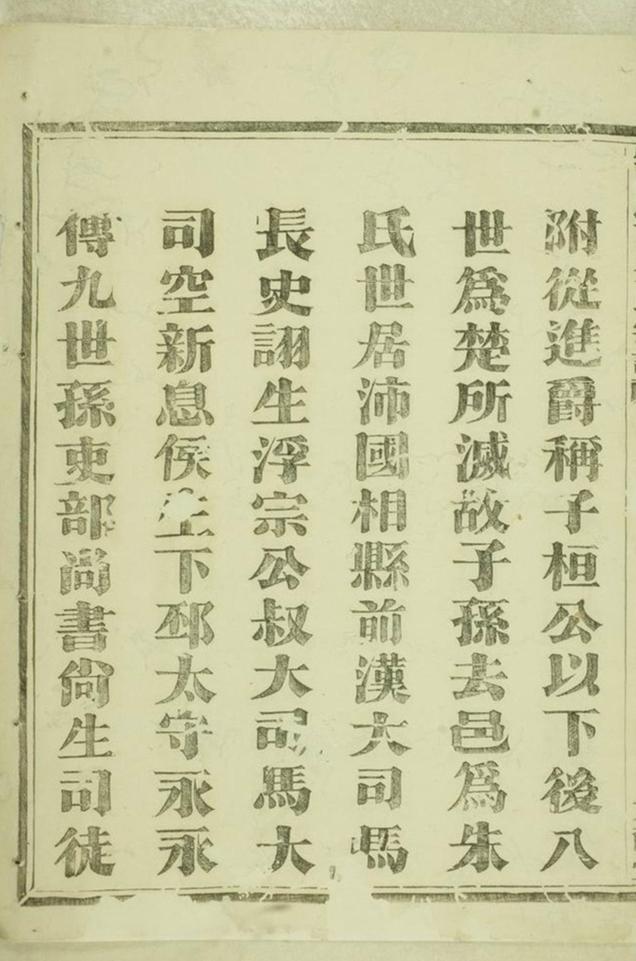 附從進爵稱子桓公以下後八
世爲楚所滅故子孫去邑爲朱
氏世居沛國相縣前漢大司馬
長史詡生浮宗公叔大司馬大
司空新息侯生下邳太守永永
傳九世孫吏部尚書尙生司徒